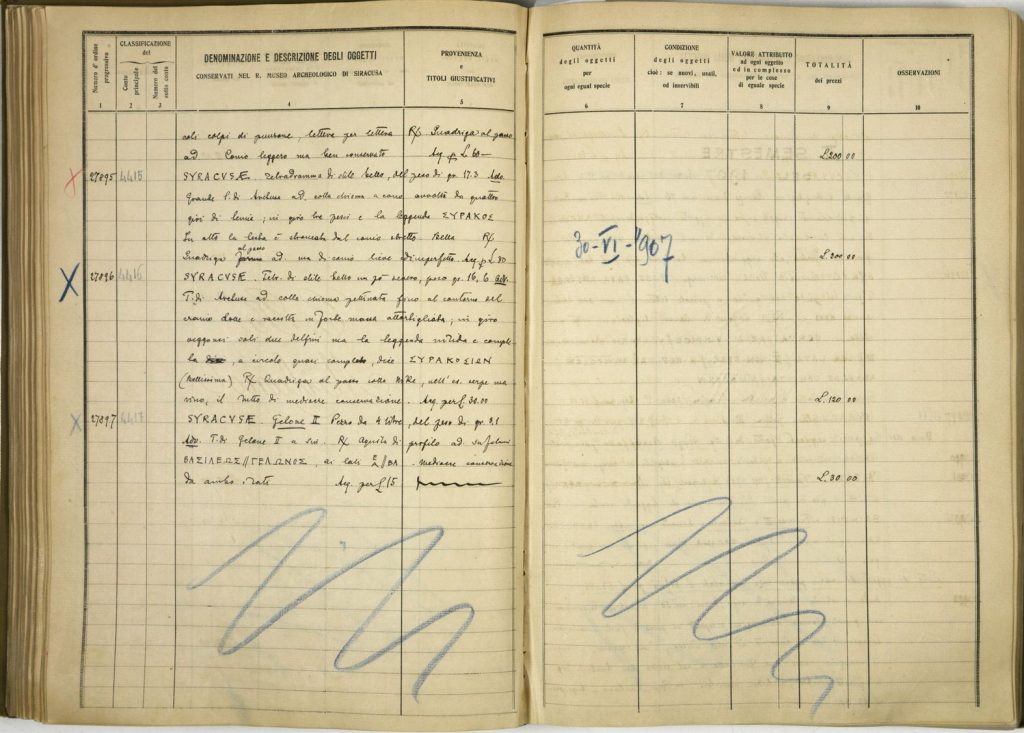 Numero d'ordine progressivo
CLASSIFICAZIONE del
Conto principale
Numero del sotto conto
DENOMINAZIONE E DESCRIZIONE DEGLI OGGETTI
CONSERVATI NEL R. MUSEO ARCHEOLOGICO DI SIRACUSA
PROVENIENZA
e
TITOLI GIUSTIFICATIVI
1 2 3 4 5
QUANTITÀ
degli oggetti
per
ogni egual specie
CONDIZIONE
degli oggetti
cioè: se nuovi, usati,
od inservibili
VALORE ATTRIBUITO
ad ogni oggetto
ed in complesso
per le cose
di eguale specie
TOTALITÀ
dei prezzi
OSSERVAZIONI
6 7 8 9 10
soli colpi di punzone, lettera per lettera R/ Quadriga al passo
ad. Conio leggero ma ben conservato Acq. p. L. 60—
L. 200 00
X 27895 4415 SYRACVSÆ Tetradramma di stile bello, del peso di gr. 17.3 Adv.
Grande T. di Arethusa ad. colla chioma a cono avvolta da quattro
giri di ; in giro tre pesci e la leggenda ΣΥΡΑΚΟΣ
In alto la testa è stroncata dal conio stretto. Bella R/
Quadriga al passo ad. ma di conio lieve ed imperfetto. Acq. p. L. 80
L. 200 00
30-VI-1907
X 27896 4416 SYRACVSÆ. Tetr. di stile bello un po' scarso, peso gr. 16. 6 Adv.
T. di Arethusa ad. colla chioma pettinata fino al contorno del
cranio dove è raccolta in forte massa attorcigliata; in giro
veggonsi soli due delfini ma la leggenda nitida e comple-
ta, a circolo quasi completo, dice ΣΥΡΑΚΟΣΙΩΝ
(bellissima) R/ Quadriga al passo colla Nike, nell'es.
vino, il tutto di mediocre conservazione. Acq. per £. 30.00
L. 120 00
X 27897 4417 SYRACVSÆ Gelone II Pezzo da 4 litre, del peso di gr.
Adv. T. di Gelone II a sin. R/ Aquila di profilo ad. su fulmine
ΒΑΣΙΛΕΩΣ // ΓΕΛΩΝΟΣ, ai lati // ΒΑ. Mediocre conservazione
da ambo i lati Acq. per £. 15
L. 30 00